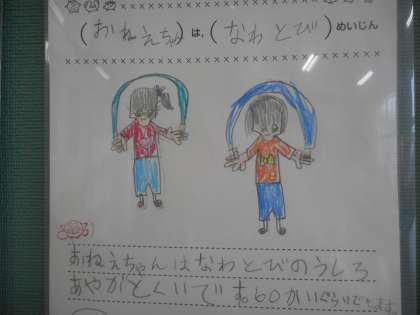 (おねえちゃん)は、(なわとび)めいじん
おねえちゃんはなわとびのうしろ
あやがとくいです。60かいぐらいできます。